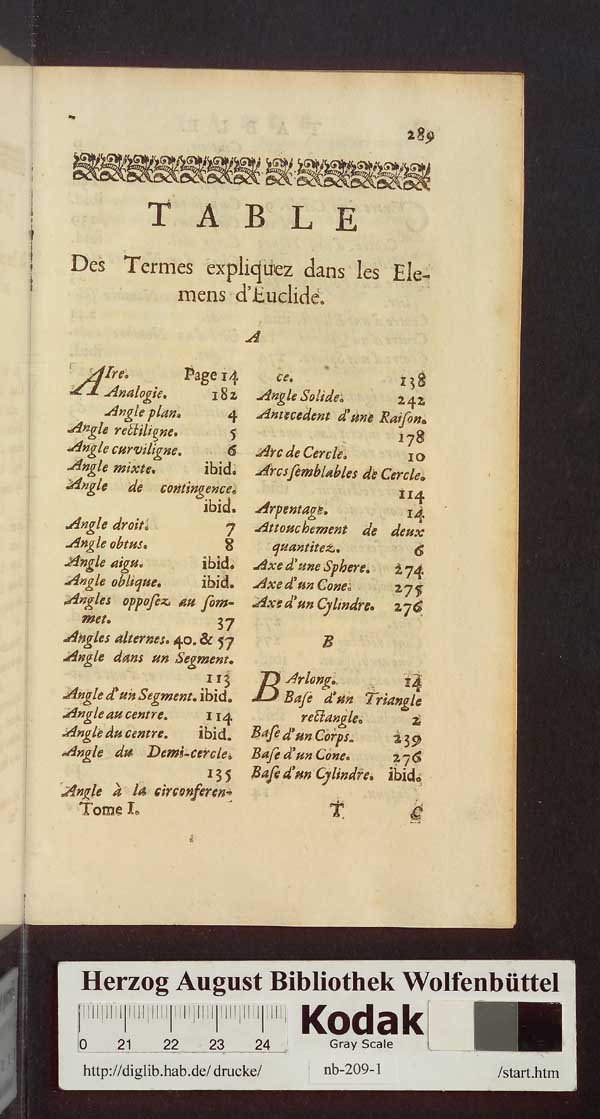 289
TABLE
Des Termes expliquez dans les Ele-
mens d'Euclide.
A
AIre. Page 14
Analogie. 182
Angle plan. 4
Angle rectiligne. 5
Angle curviligne. 6
Angle mixte. ibid.
Angle de contingence.
ibid.
Angle droit. 7
Angle obtus. 8
Angle aigu. ibid.
Angle oblique. ibid.
Angles opposez au som-
met. 37
Angles alternes. 40. & 57
Angle dans un Segment.
113
Angle d'un Segment. ibid.
Angle au centre. 114
Angle du centre. ibid.
Angle du Demi-cercle.
135
Angle à la circonferen-
ce. 138
Angle Solide. 242
Antecedent d'une Raison.
178
Arc de Cercle. 10
Arcs semblables de Cercle.
114
Arpentage. 14
Attouchement de deux
quantitez. 6
Axe d'une Sphere. 274
Axe d'un Cone. 275
Axe d'un Cylindre. 276
B
BArlong. 14
Base d'un Triangle
rectangle. 2
Base d'un Corps. 239
Base d'un Cone. 276
Base d'un Cylindre. ibid.
Tome I. T C
Herzog August Bibliothek Wolfenbüttel
0 21 22 23 24
Kodak
Gray Scale
http://diglib.hab.de/ drucke/ nb-209-1 /start.htm